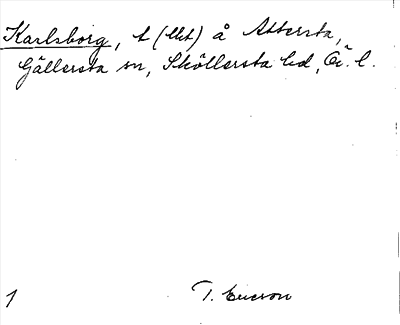 Karlsborg, t (llt) å Attersta,
Gällersta sn, Sköllersta hd, Ö. l.
T. Ericson
1